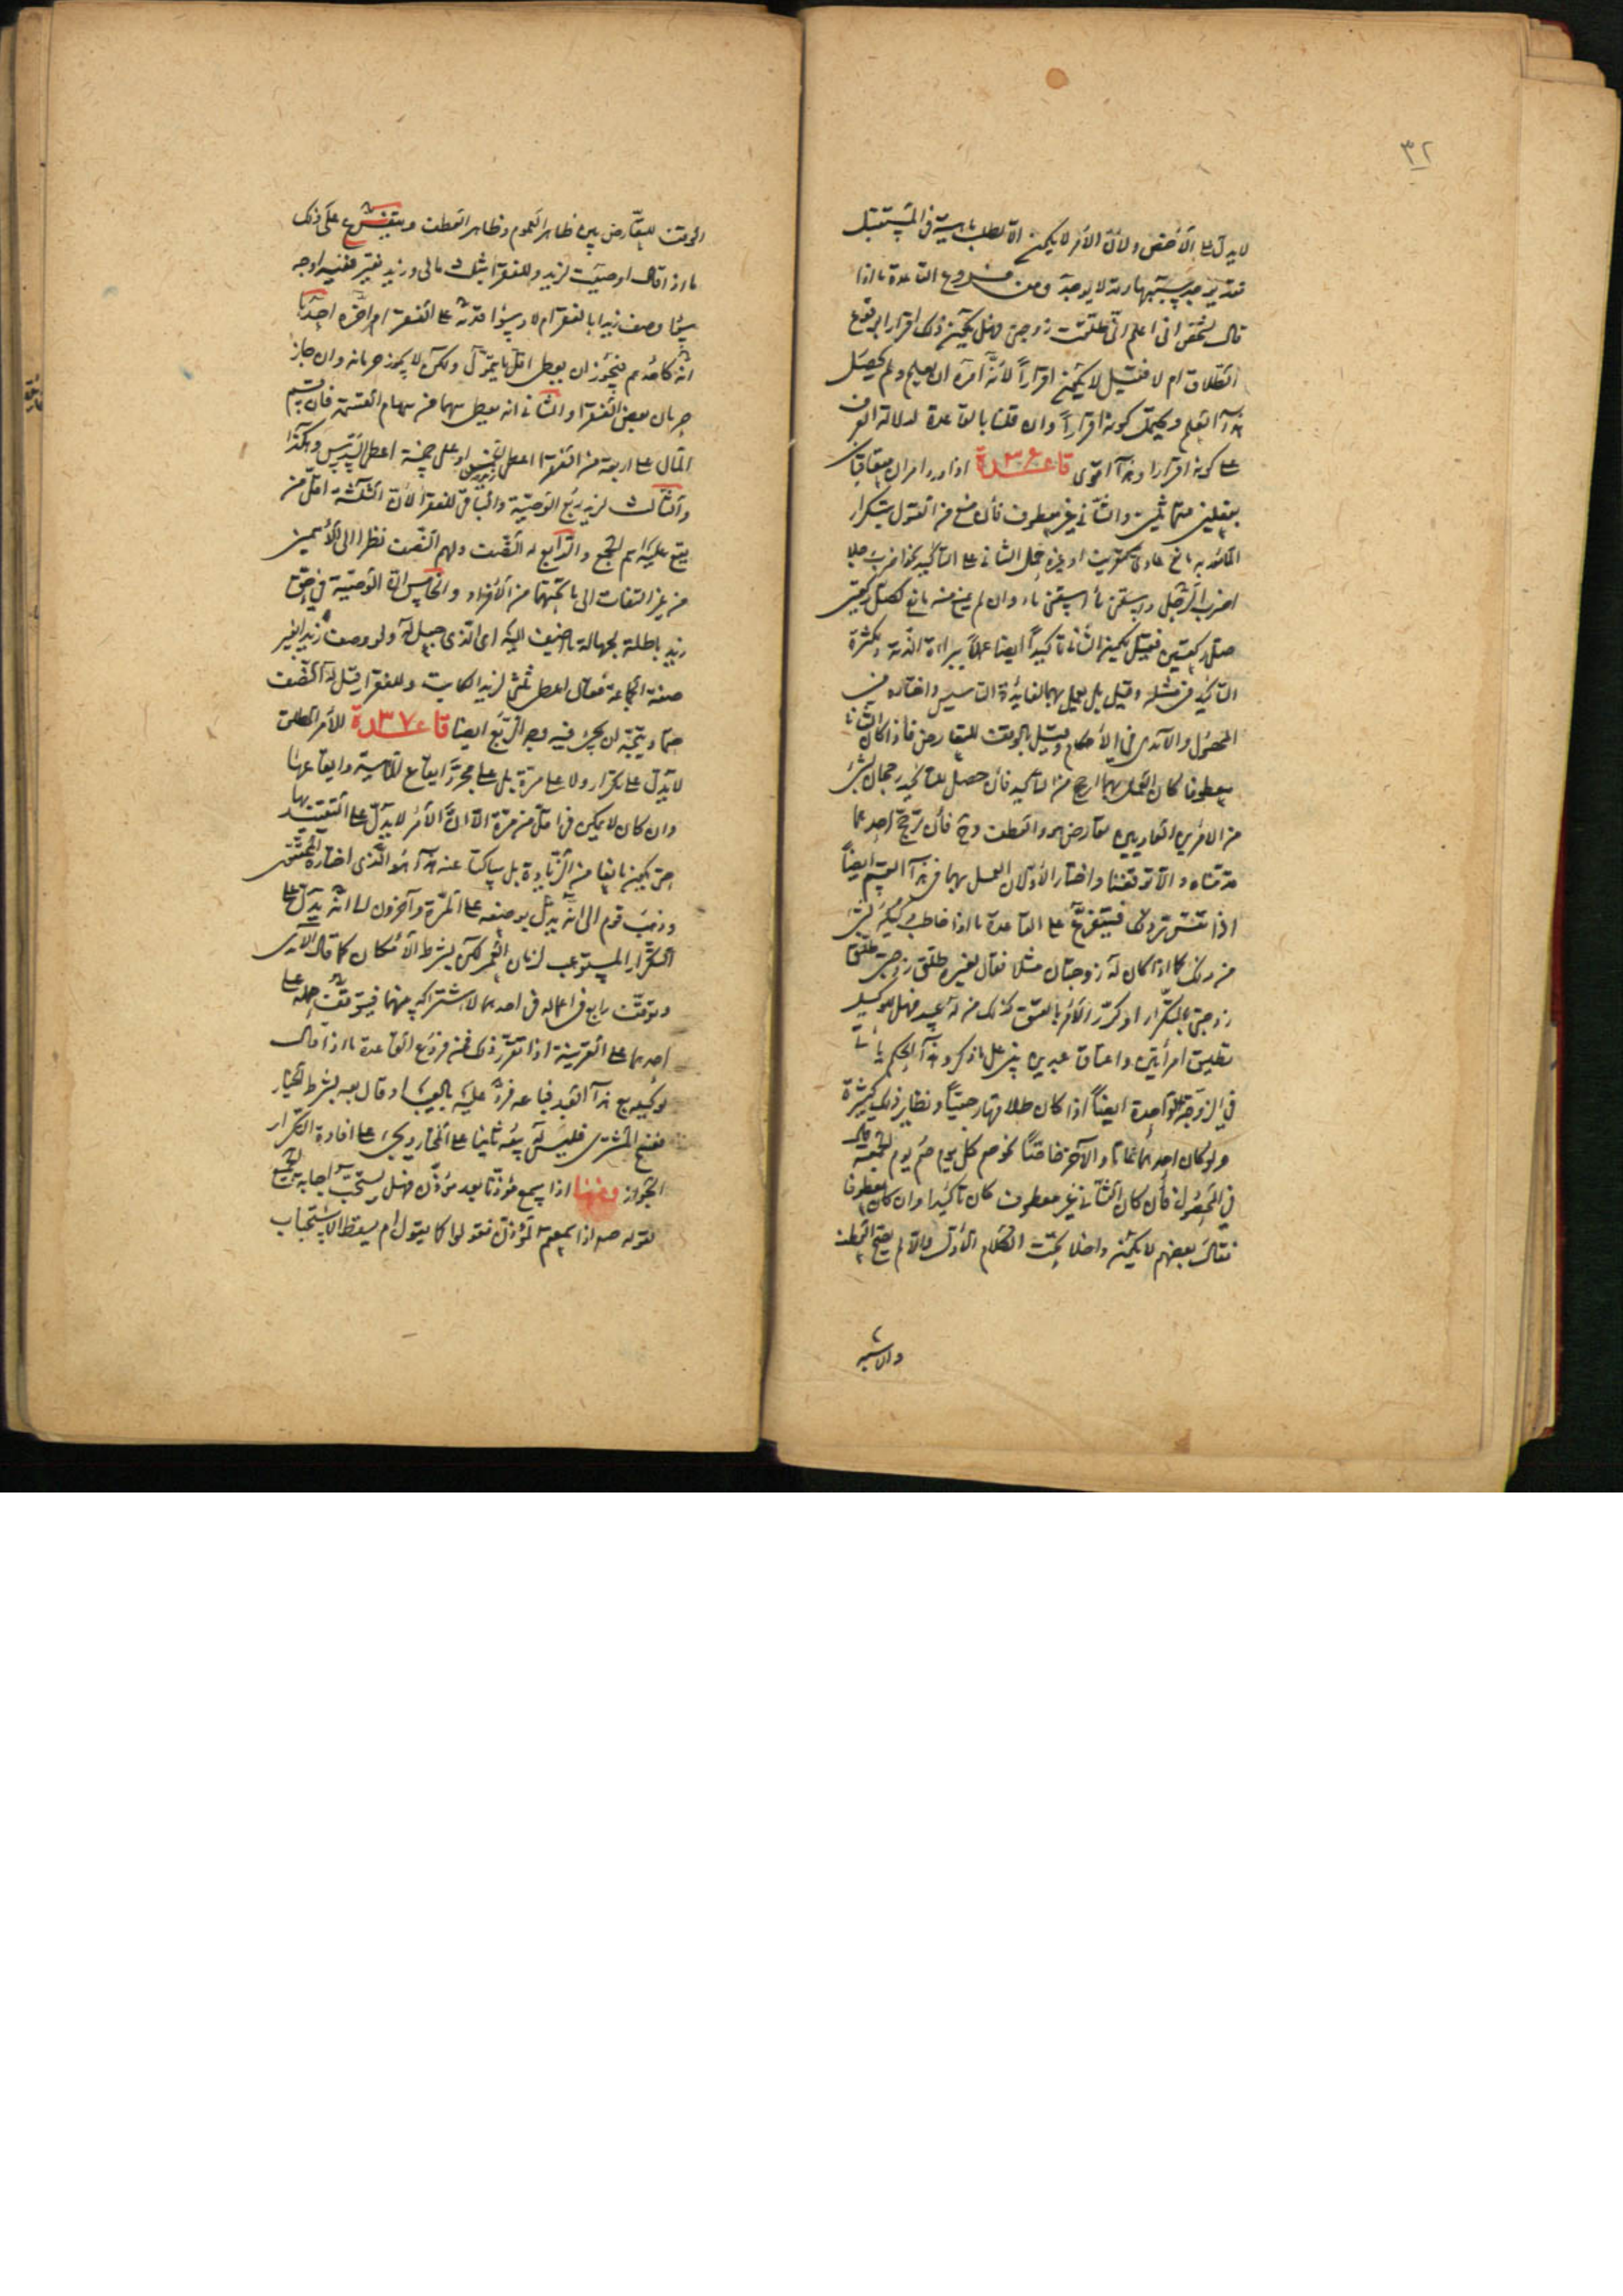 ٣٢
لا يدل على الأخص ولأن الأمر لا يكون إلا بطلب ماهية في المستقبل
فقد يوجد سببها وقد لا يوجد ومن فروع القاعدة ما اذا
قال لشخص اني اعلم اني طلقت زوجتي فهل يكون ذلك اقرارا بوقوع
الطلاق ام لا فقيل لا يكون اقراراً لأنه أمره ان يعلم ولم يحصل
هذا العلم ويحتمل كونه اقراراً وان قلنا بالقاعدة لدلالة العرف
على كونه اقرارا وهذا اقوى قاعدة ٣٦ اذا ورد امران متعاقبان
بفعلين متماثلين والثاني غير معطوف فأن منع من القول بتكرار
المأمور به مانع عادي كتعريف او غيره حمل الثاني على التأكيد نحو اضرب رجلا
اضرب الرجل واسقني ماء اسقني ماء وان لم يمنع منه مانع كصل ركعتين
صل ركعتين فقيل يكون الثاني تأكيداً ايضا عملاً ببراءة الذمة وبكثرة
التأكيد في مثله وقيل بل يعمل بهما لفائدة التأسيس واختاره في
المحصول والآمدي في الأحكام وقيل بالوقف للتعارض فاذا كان الثاني
معطوفا كان العمل بهما ارجح من التأكيد فأن حصل للتأكيد رجحان بشئ
من الامرين العاديين تعارض هو والعطف وح فأن ترجح احدهما
قدمناه والا توقفنا واختار الأولان العمل بهما في هذا القسم ايضاً
اذا تقرر ذلك فيتفرع على القاعدة ما اذا خاطب وكيله بشئ
من ذلك كما اذا كان له زوجتان مثلا فقال لغيره طلق زوجتي طلق
زوجتي بالتكرار او كرر الأمر بالعتق كذلك من له عبيد فهل للوكيل
تطليق امرأتين واعتاق عبدين ينزل على ما ذكر وهذا الحكم يأتي
في الزوجة الواحدة ايضاً اذا كان طلاقها رجعياً ونظاير ذلك كثيرة
ولو كان احدهما عاما والآخر خاصاً نحو صم كل يوم صم يوم الجمعة قال
في المحصول فأن كان الثاني غير معطوف كان تأكيدا وان كان معطوفا
فقال بعضهم لا يكون داخلا تحت الكلام الأول والا لم يصح العطف
والاشبه
الوقف للتعارض بين ظاهر العموم وظاهر العطف ويتفرع على ذلك
ما اذا قال اوصيت لزيد وللفقراء بثلث مالي وزيد فقير ففيه اوجه
سواء وصف زيدا بالفقر ام لا وسواء قدمه على الفقراء ام اخره احدها
انه كأحدهم فيجوز ان يعطى اقل ما يتمول ولكن لا يجوز حرمانه وان جاز
حرمان بعض الفقراء والثاني انه يعطى سهما من سهام القسمة فأن قسم
المال على اربعة من الفقراء اعطى زيد الخمس او على خمسة اعطى السدس وهكذا
والثالث لزيد ربع الوصية والباقي للفقراء لأن الثلثة اقل من
يقع عليه اسم الجمع والرابع له النصف ولهم النصف نظرا الى الأسمين
من غير التفات الى ما تحتهما من الأفراد والخامس ان الوصية في حق
زيد باطلة لجهالة ما اضيف اليه اي الذي جعل له ولو وصف زيدا بغير
صفة الجماعة فقال اعطى ثلثي لزيد الكاتب وللفقراء قيل له النصف
حتما ويتجه ان يجئ فيه وجه الربع ايضا قاعدة ٣٧ للأمر المطلق
لا يدل على تكرار ولا على مرة بل على مجرد ايقاع الماهية وايقاعها
وان كان لا يمكن في اقل من مرة الا ان الأمر لا يدل على التقييد بها
حتى يكون مانعا من الزيادة بل ساكتا عنه هذا هو الذي اختاره المحققون
وذهب قوم الى انه يدل بوضعه على المرة وآخرون الى انه يدل على
التكرار المستوعب لزمان العمر لكن بشرط الأمكان كما قال الآمدي
وتوقف رابع في اعماله في احدهما لاشتراكه بينهما فيتوقف حمله على
احدهما على القرينة اذا تقرر ذلك فمن فروع القاعدة ما اذا قال
لوكيله بع هذا العبد فباعه فرد عليه بالعيب او قال بعه بشرط الخيار
ففسخ المشتري فليس له بيعه ثانيا على المختار ويجئ على افادة التكرار
الجواز ومنها اذا سمع مؤذنا بعد مؤذن فهل يستحب اجابة الجميع
لقوله صم اذا سمعتم المؤذن فقولوا كما يقول ام يسقط الاستحباب